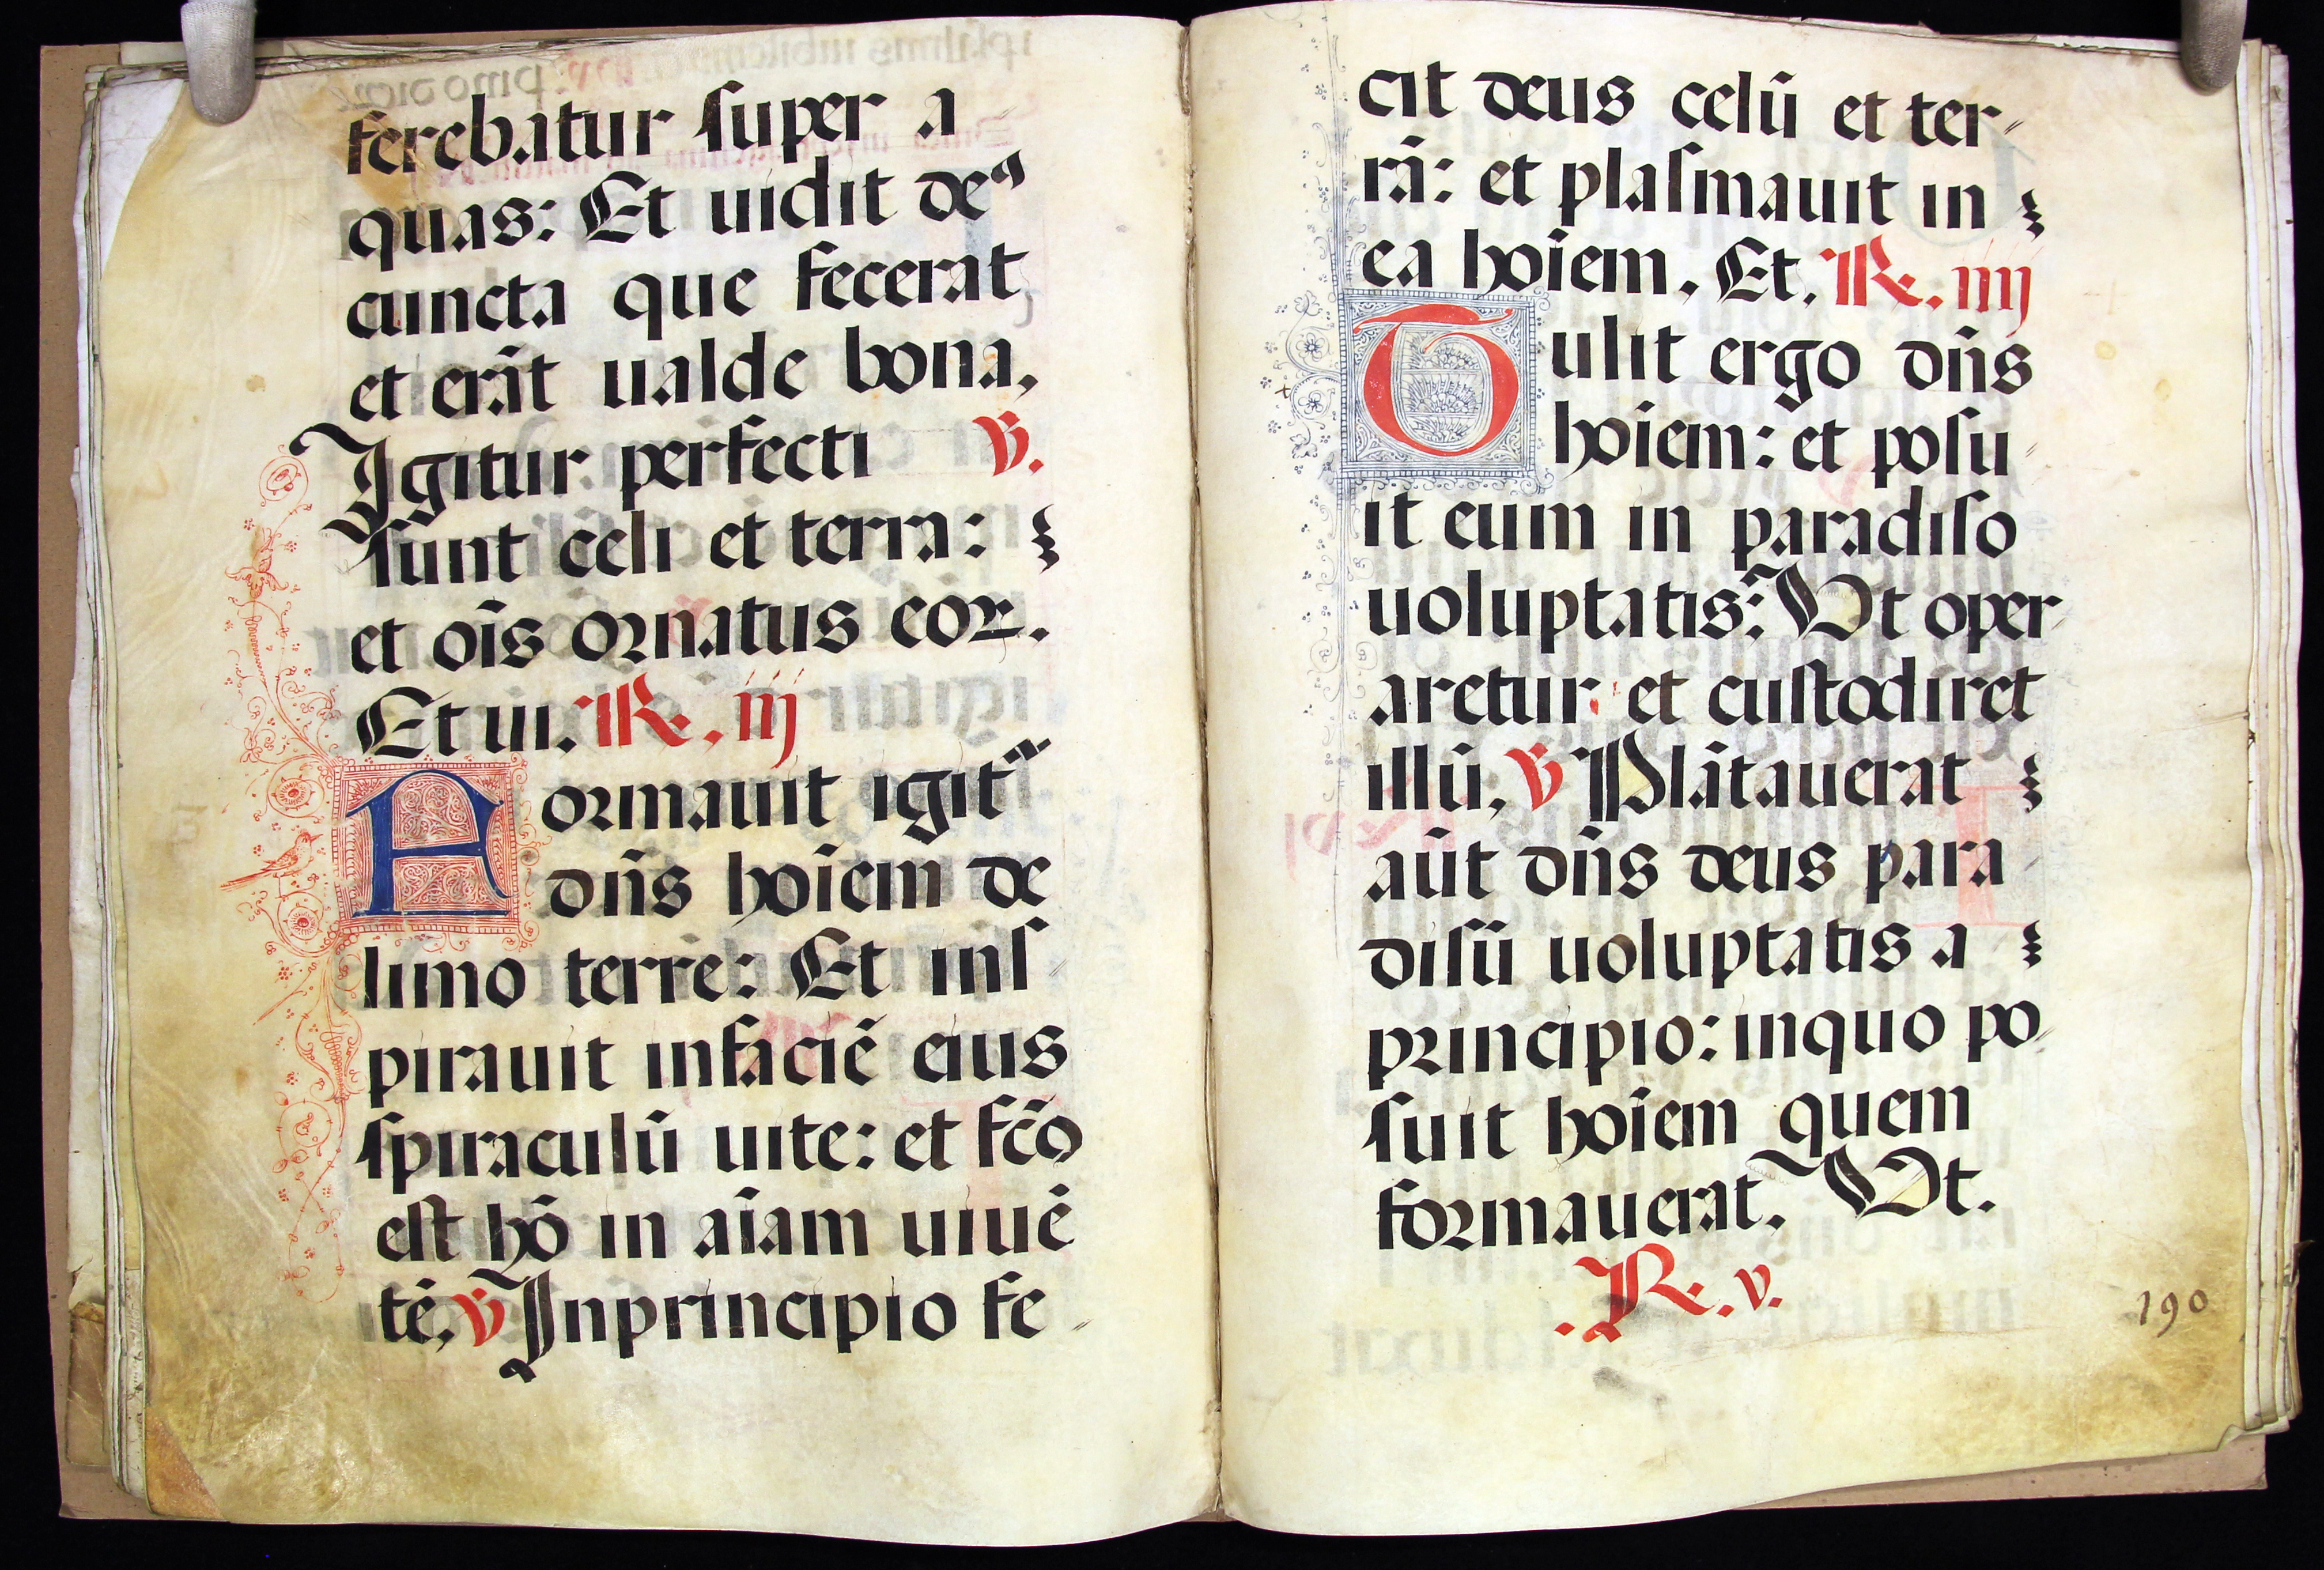 ferebatur ſuper a
quas: Et uidit deꝰ
cuncta que fecerat
et erãt ualde bona,
Igitur perfecti ℣.
ſunt celi et terra:
et oĩs ornatus coꝝ.
Et ui. ℟. iij
Formauit igit᷑
dñs hoĩem de
limo terre: Et inſ
pirauit infaciẽ eius
ſpiraculũ uite: et fc̃o
eſt hõ in aĩam uiuẽ
tẽ, ℣ Inprincipio fe
cit deus celũ et ter
rã: et plaſmauit in
ea hoĩem. Et. ℟. iiij
Tulit ergo dñs
hoiem: et poſu
it eum in paradiſo
uoluptatis: Vt oper
aretur et cuſtodiret
illũ, ℣ Plãtauerat
aũt dñs deus para
diſũ uoluptatis a
principio: inquo po
ſuit hoĩem quem
formauerat, Vt.
℟. v.
190